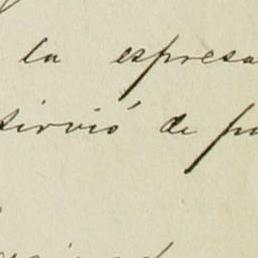 la espresa
sirvió de pa